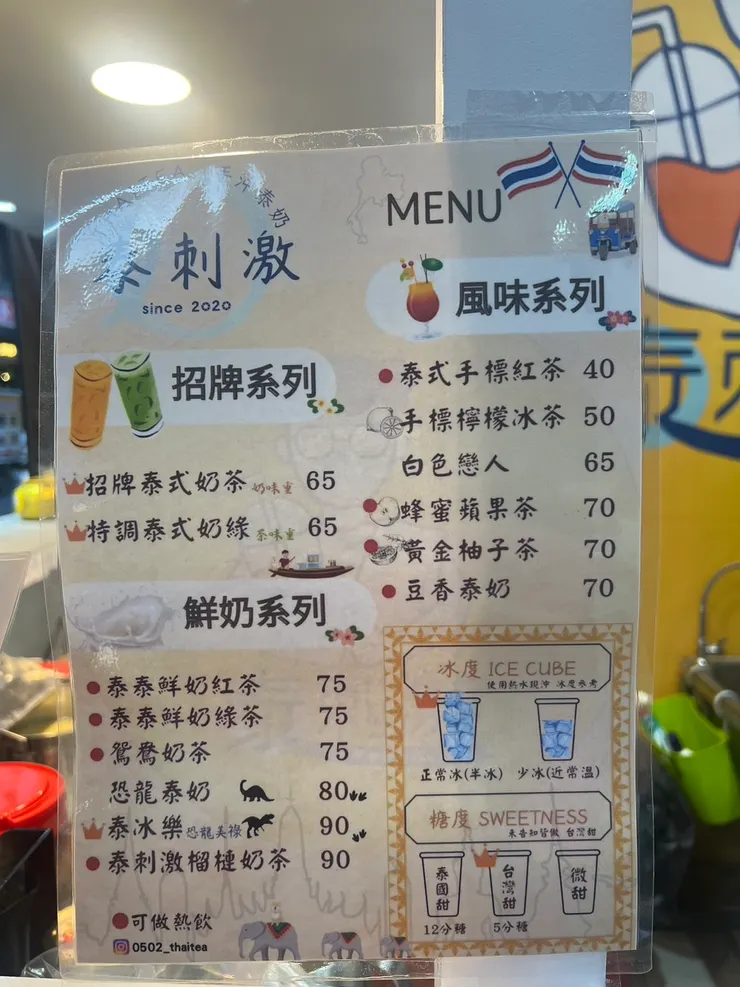 泰奶
泰刺激
since 2020
MENU
風味系列
泰式手標紅茶 40
手標檸檬冰茶 50
白色戀人 65
蜂蜜蘋果茶 70
黃金柚子茶 70
豆香泰奶 70
招牌系列
招牌泰式奶茶 奶味重 65
特調泰式奶綠 茶味重 65
鮮奶系列
泰泰鮮奶紅茶 75
泰泰鮮奶綠茶 75
鴛鴦奶茶 75
恐龍泰奶 80
泰冰樂 恐龍美祿 90
泰刺激榴槤奶茶 90
可做熱飲
0502_thaitea
冰度 ICE CUBE
使用熱水現沖 冰度參考
正常冰(半冰) 少冰(近常溫)
糖度 SWEETNESS
未告知皆做 台灣甜
泰國甜 台灣甜 微甜
12分糖 5分糖